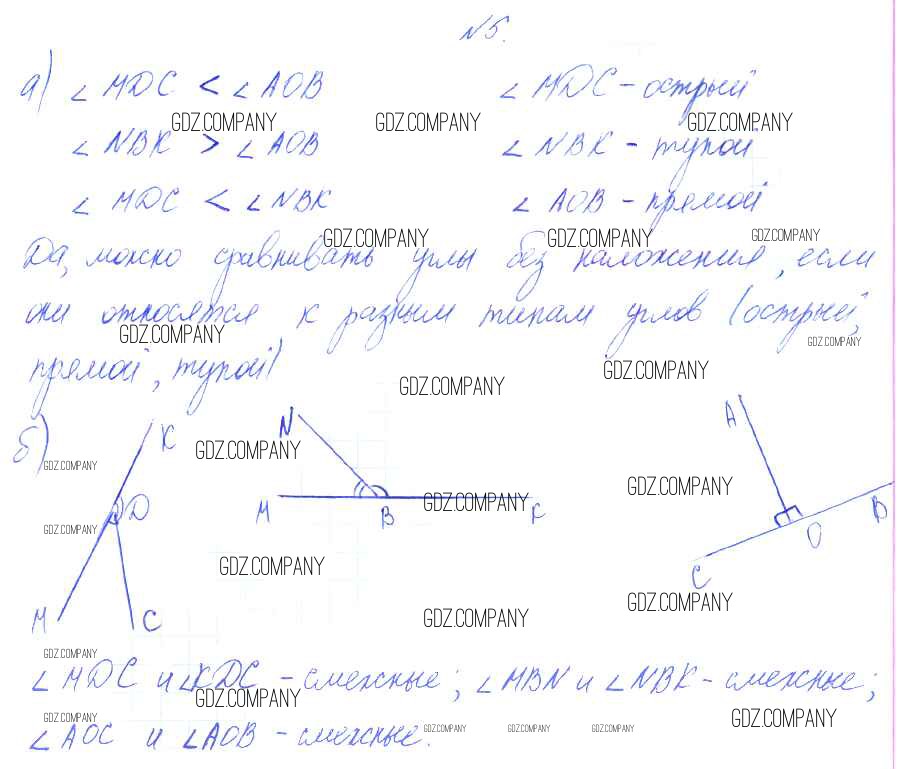 №5.
а) ∠MDC < ∠AOB ∠MDC – острый
GDZ.COMPANY GDZ.COMPANY GDZ.COMPANY
∠NBK > ∠AOB ∠NBK – тупой
∠MDC < ∠NBK ∠AOB – прямой
GDZ.COMPANY GDZ.COMPANY GDZ.COMPANY
Да, можно сравнивать углы без наложения, если
они относятся к разным типам углов (острый,
GDZ.COMPANY GDZ.COMPANY
прямой, тупой)
GDZ.COMPANY GDZ.COMPANY
б) K N A
GDZ.COMPANY GDZ.COMPANY
GDZ.COMPANY GDZ.COMPANY
D M B K B
GDZ.COMPANY O
GDZ.COMPANY C
GDZ.COMPANY GDZ.COMPANY
M C
GDZ.COMPANY
∠MDC и ∠KDC – смежные; ∠MBN и ∠NBK – смежные;
GDZ.COMPANY GDZ.COMPANY GDZ.COMPANY
∠AOC и ∠AOB – смежные.
GDZ.COMPANY GDZ.COMPANY GDZ.COMPANY